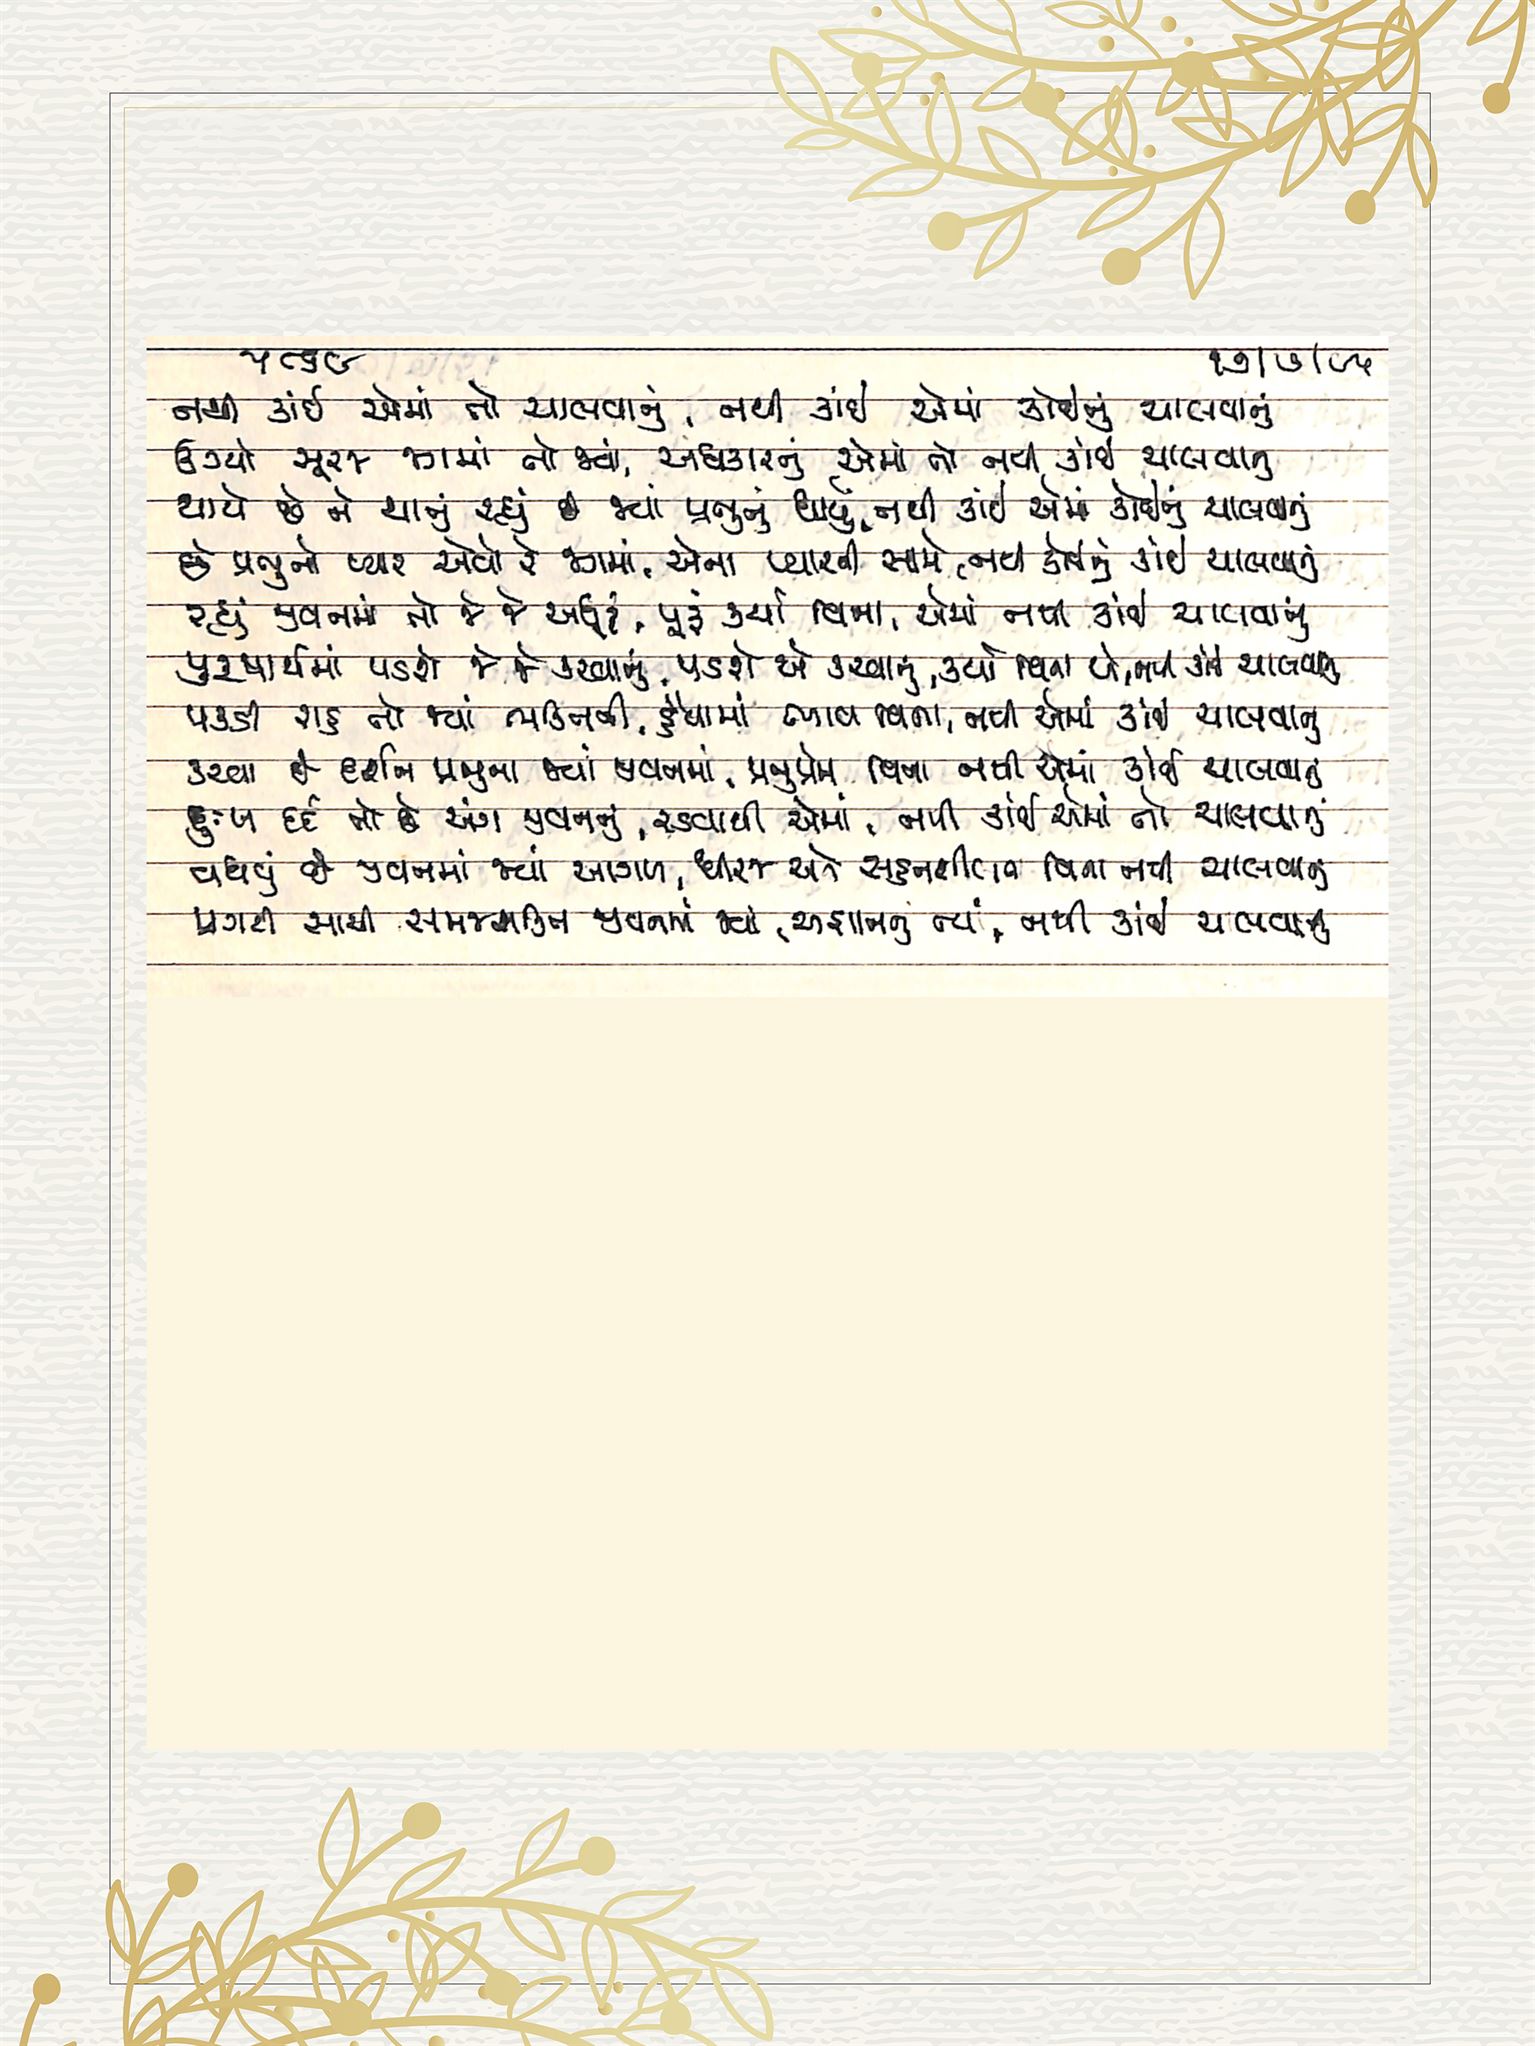 ૫૮૬૭ ૧૭/૭/૯૫
નથી કાંઈ એમાં તો ચાલવાનું, નથી કાંઈ એમાં કોઈનું ચાલવાનું
ઉગ્યો સૂરજ જગમાં તો જ્યાં, અંધકારનું એમાં તો નથી કાંઈ ચાલવાનુ
થાયે છે ને થાતું રહ્યું છે જ્યાં પ્રભુનું ધાર્યું, નથી કાંઈ એમાં કોઈનું ચાલવાનું
છે પ્રભુનો પ્યાર એવો રે જગમાં, એના પ્યારની સામે, નથી કોઈનું કાંઈ ચાલવાનું
રહ્યું જીવનમાં તો જે જે અધૂરું, પૂરું કર્યા વિના, એમાં નથી કાંઈ ચાલવાનું
પુરુષાર્થમાં પડશે જે જે કરવાનું, પડશે એ કરવાનુ, કર્યા વિના એ, નથી કાંઈ ચાલવાનુ
પકડી રાહ તો જ્યાં ભક્તિની, હૈયામાં ભાવ વિના, નથી એમાં કાંઈ ચાલવાનુ
કરવા છે દર્શન પ્રભુના જ્યાં જીવનમાં, પ્રભુપ્રેમ વિના નથી એમાં કાંઈ ચાલવાનુ
દુઃખ દર્દ તો છે અંગ જીવનનુ, રડવાથી એમાં, નથી કાંઈ એમાં તો ચાલવાનું
વધવું છે જીવનમાં જ્યાં આગળ, ધીરજ અને સહનશીલતા વિના નથી ચાલવાનુ
પ્રગટી સાચી સમજશક્તિ જીવનમાં જ્યાં, અજ્ઞાનનુ ત્યાં, નથી કાંઈ ચાલવાનુ